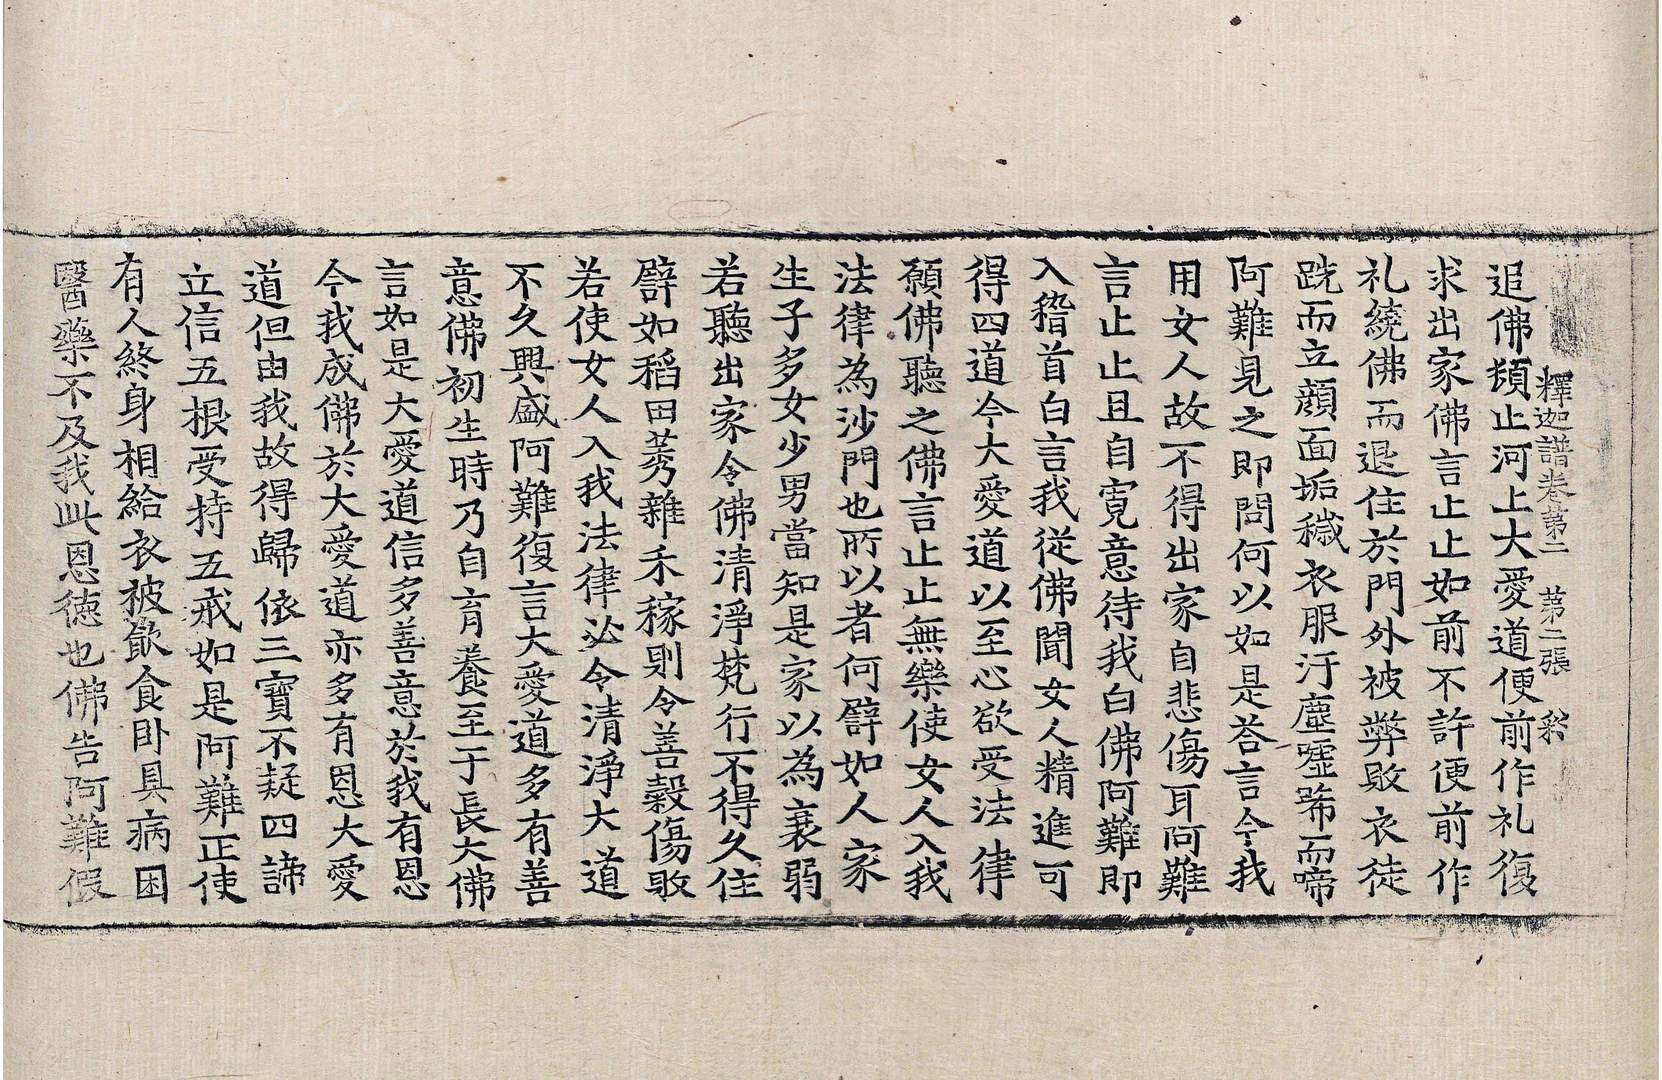 釋迦譜卷第二 第二張
追佛頓止河上大愛道便前作礼復
求出家佛言止止如前不許便前作
礼繞佛而退住於門外被弊敗衣徒
跣而立顔面垢穢衣服汙塵噓唏而啼
阿難見之即問何以如是荅言今我
用女人故不得出家自悲傷耳阿難
言止止且自寬意待我白佛阿難即
入稽首白言我從佛聞女人精進可
得四道今大愛道以至心欲受法律
願佛聽之佛言止止無樂使女人入我
法律為沙門也所以者何譬如人家
生子多女少男當知是家以為衰弱
若聽出家令佛清淨梵行不得久住
譬如稻田莠雜禾稼則令善穀傷敗
若使女人入我法律必令清淨大道
不久興盛阿難復言大愛道多有善
意佛初生時乃自育養至于長大佛
言如是大愛道信多善意於我有恩
今我成佛於大愛道亦多有恩大愛
道但由我故得歸依三寶不疑四諦
立信五根受持五戒如是阿難正使
有人終身相給衣被飲食卧具病困
醫藥不及我此恩德也佛告阿難假